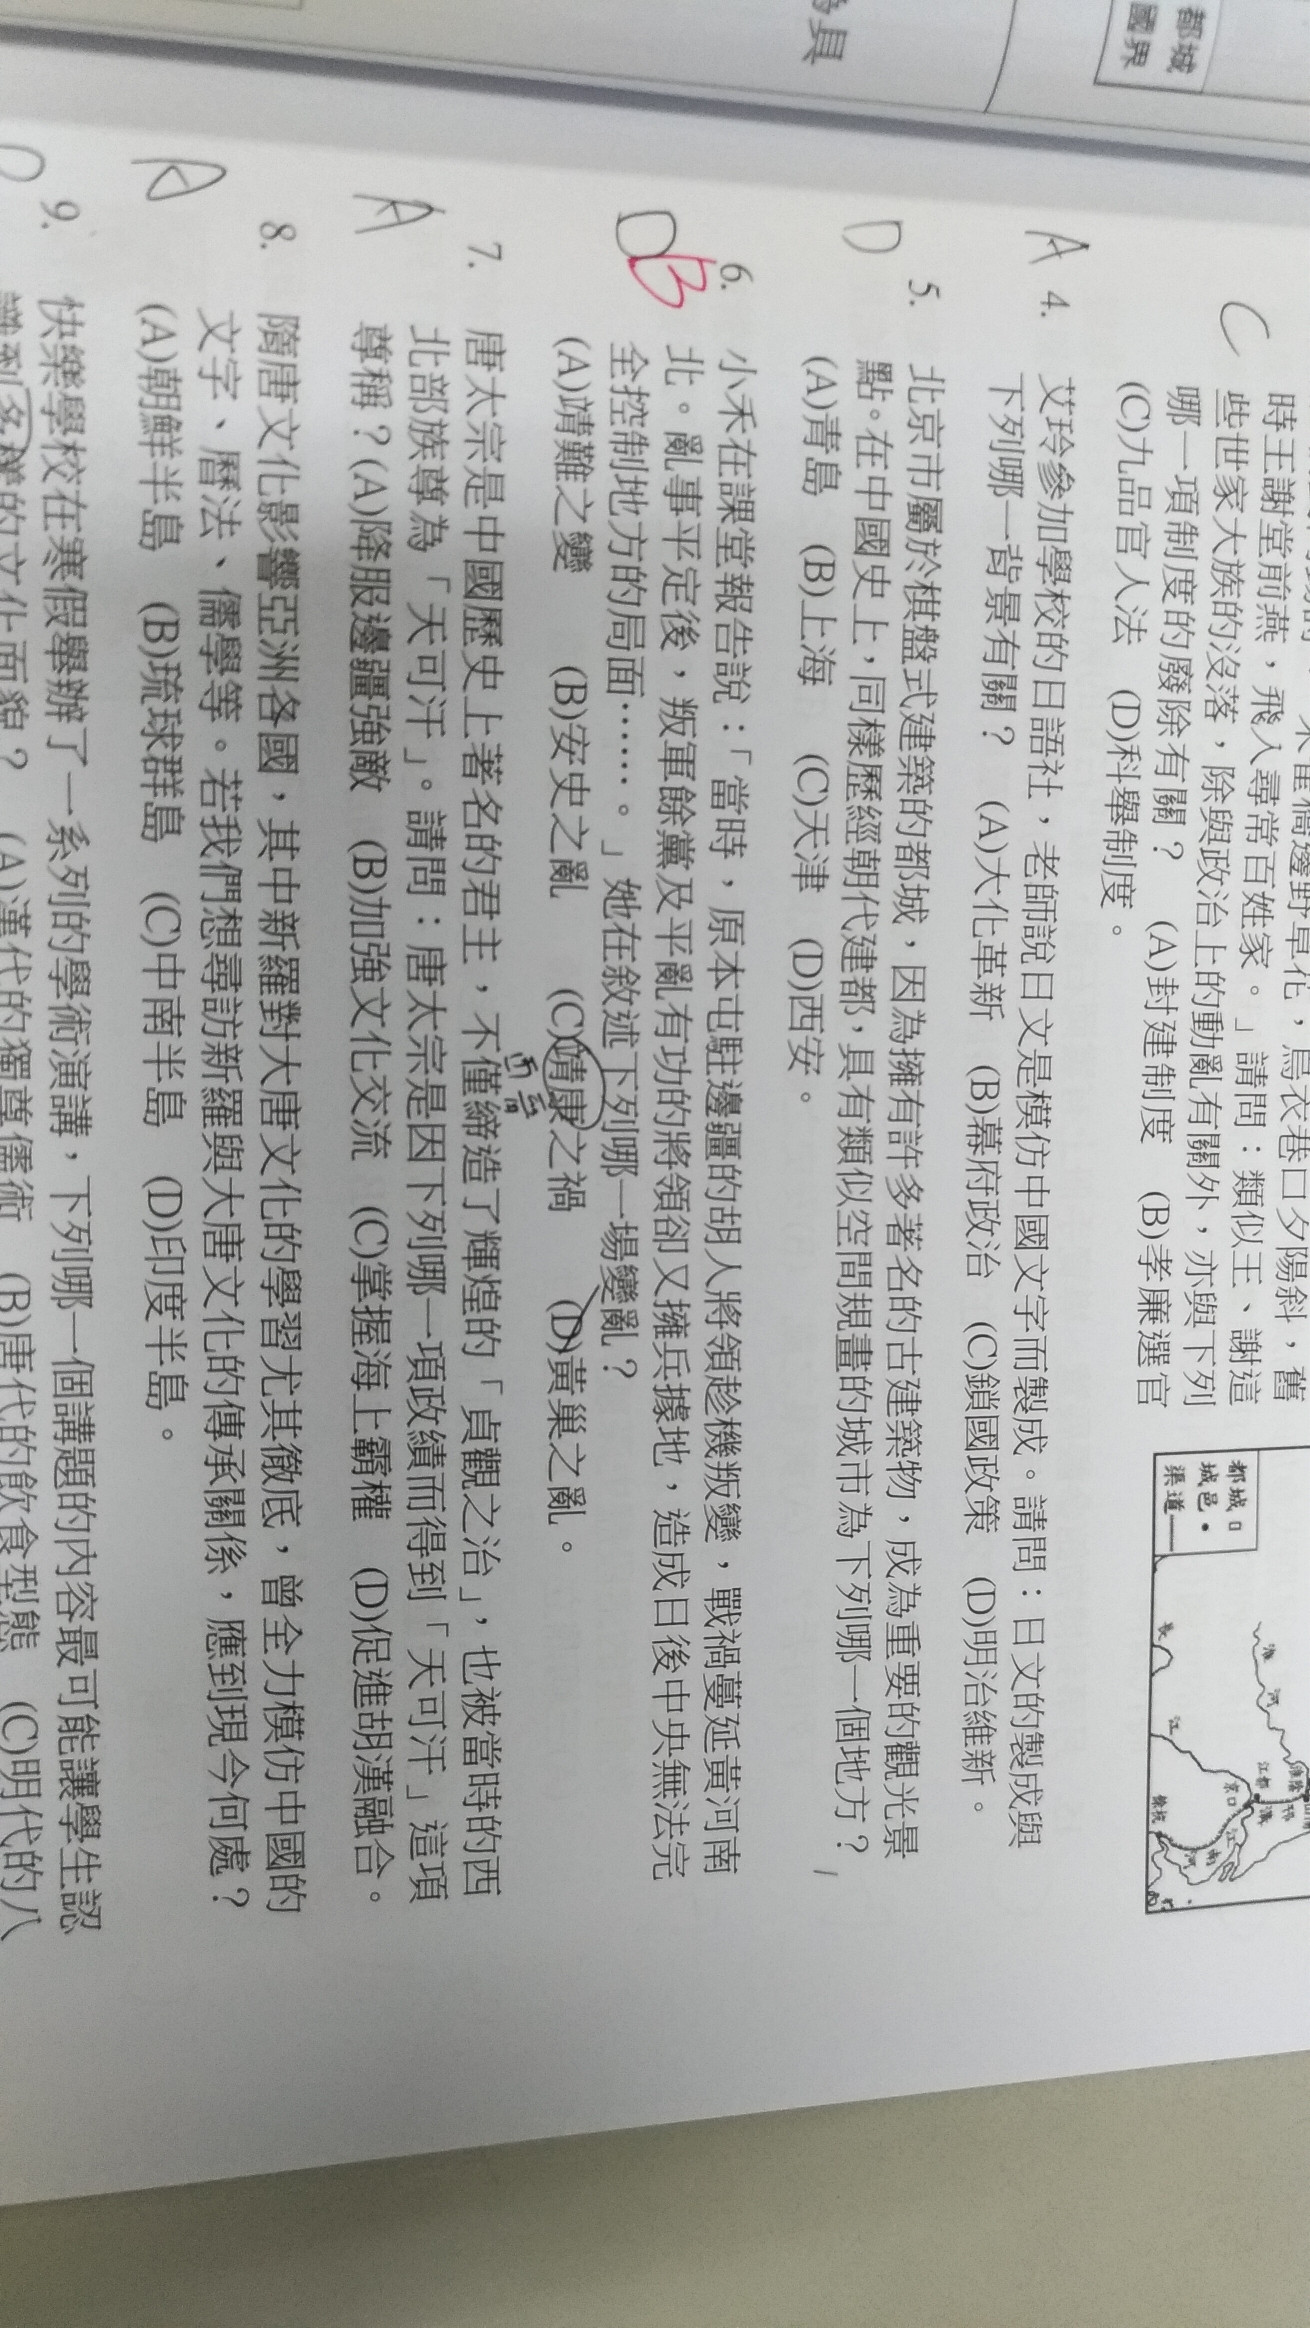 都城
國界
時王謝堂前燕，飛入尋常百姓家。」請問：類似王、謝這
些世家大族的沒落，除與政治上的動亂有關外，亦與下列
哪一項制度的廢除有關？ (A)封建制度 (B)孝廉選官
(C)九品官人法 (D)科舉制度。
C
都城
城邑
渠道
淮河
長江
江都
京口
江南河
餘杭
A 4. 艾玲參加學校的日語社，老師說日文是模仿中國文字而製成。請問：日文的製成與
下列哪一背景有關？ (A)大化革新 (B)幕府政治 (C)鎖國政策 (D)明治維新。
D 5. 北京市屬於棋盤式建築的都城，因為擁有許多著名的古建築物，成為重要的觀光景
點。在中國史上，同樣歷經朝代建都，具有類似空間規畫的城市為下列哪一個地方？
(A)青島 (B)上海 (C)天津 (D)西安。
DB 6. 小禾在課堂報告說：「當時，原本屯駐邊疆的胡人將領趁機叛變，戰禍蔓延黃河南
北。亂事平定後，叛軍餘黨及平亂有功的將領卻又擁兵據地，造成日後中央無法完
全控制地方的局面……。」她在敘述下列哪一場變亂？
(A)靖難之變 (B)安史之亂 (C)靖康之禍 (D)黃巢之亂。
A 7. 唐太宗是中國歷史上著名的君主，不僅締造了輝煌的「貞觀之治」，也被當時的西
北部族尊為「天可汗」。請問：唐太宗是因下列哪一項政績而得到「天可汗」這項
尊稱？(A)降服邊疆強敵 (B)加強文化交流 (C)掌握海上霸權 (D)促進胡漢融合。
A 8. 隋唐文化影響亞洲各國，其中新羅對大唐文化的學習尤其徹底，曾全力模仿中國的
文字、曆法、儒學等。若我們想尋訪新羅與大唐文化的傳承關係，應到現今何處？
(A)朝鮮半島 (B)琉球群島 (C)中南半島 (D)印度半島。
D 9. 快樂學校在寒假舉辦了一系列的學術演講，下列哪一個講題的內容最可能讓學生認
識到多樣的文化面貌？ (A)漢代的獨尊儒術 (B)唐代的飲食型態 (C)明代的八